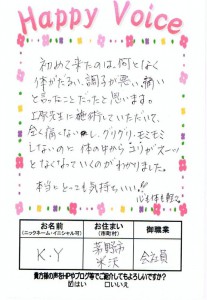 Happy Voice
初めて来たのは、何となく
体がだるい、調子が悪い、痛い
と言ったことだったと思います。
工原先生に施術していただいて、
全く痛くないし、グリグリ、モミモミ
しないのに 体の中から コリがスーッ
となくなっていくのがわかりました。
本当に とっても気持ちいい!!
心も体も軽く
お名前
(ニックネーム・イニシャル可)
お住まい
(市町村)
御職業
K・Y
茅野市
米沢
会社員
貴方様の声をHPやブログ等でご紹介してもよろしいですか?
☑はい □いいえ